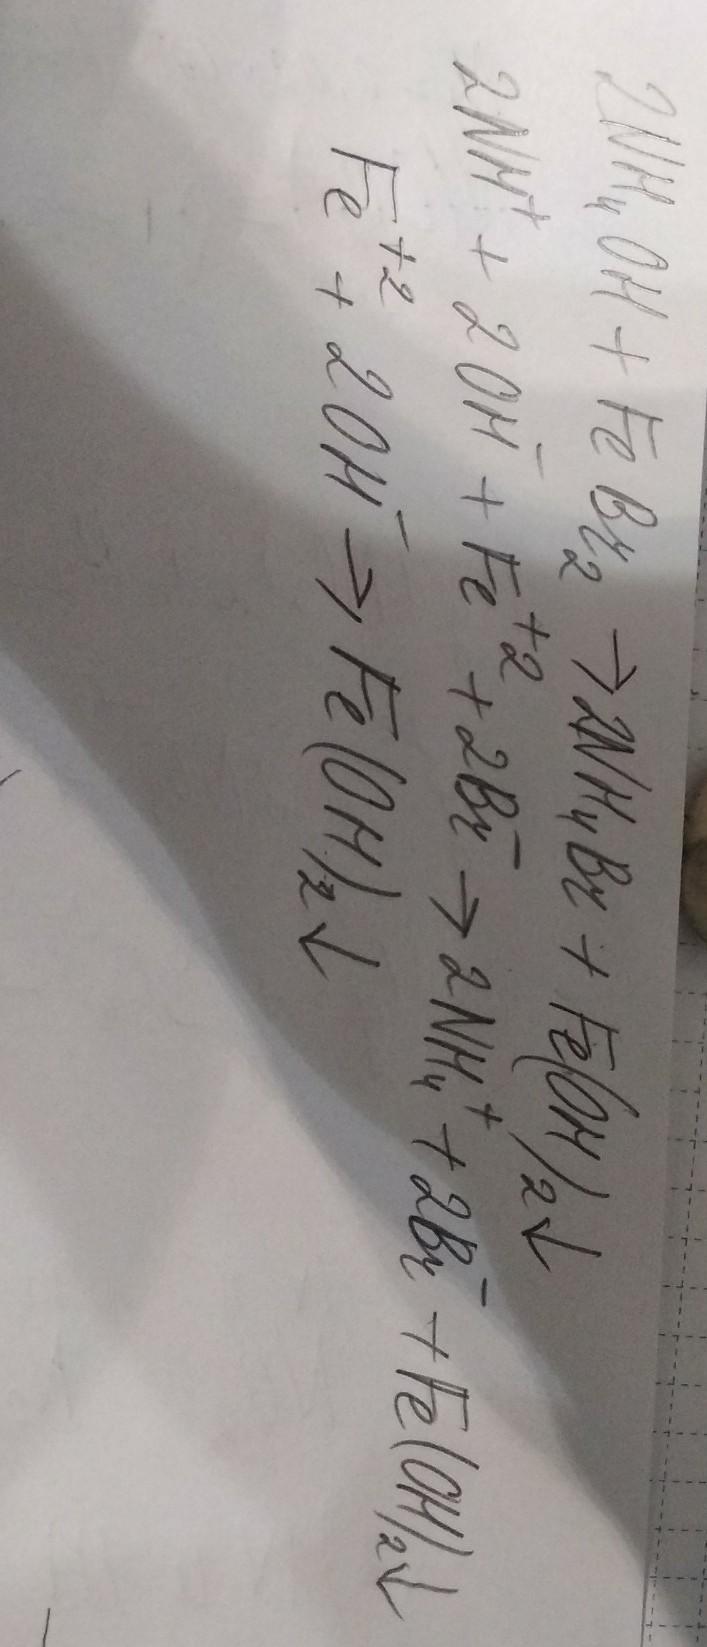 2NH₄OH + FeBr₂ → 2NH₄Br + Fe(OH)₂↓
2NH⁺ + 2OH⁻ + Fe⁺² + 2Br⁻ → 2NH₄⁺ + 2Br⁻ + Fe(OH)₂↓
Fe⁺² + 2OH⁻ → Fe(OH)₂↓